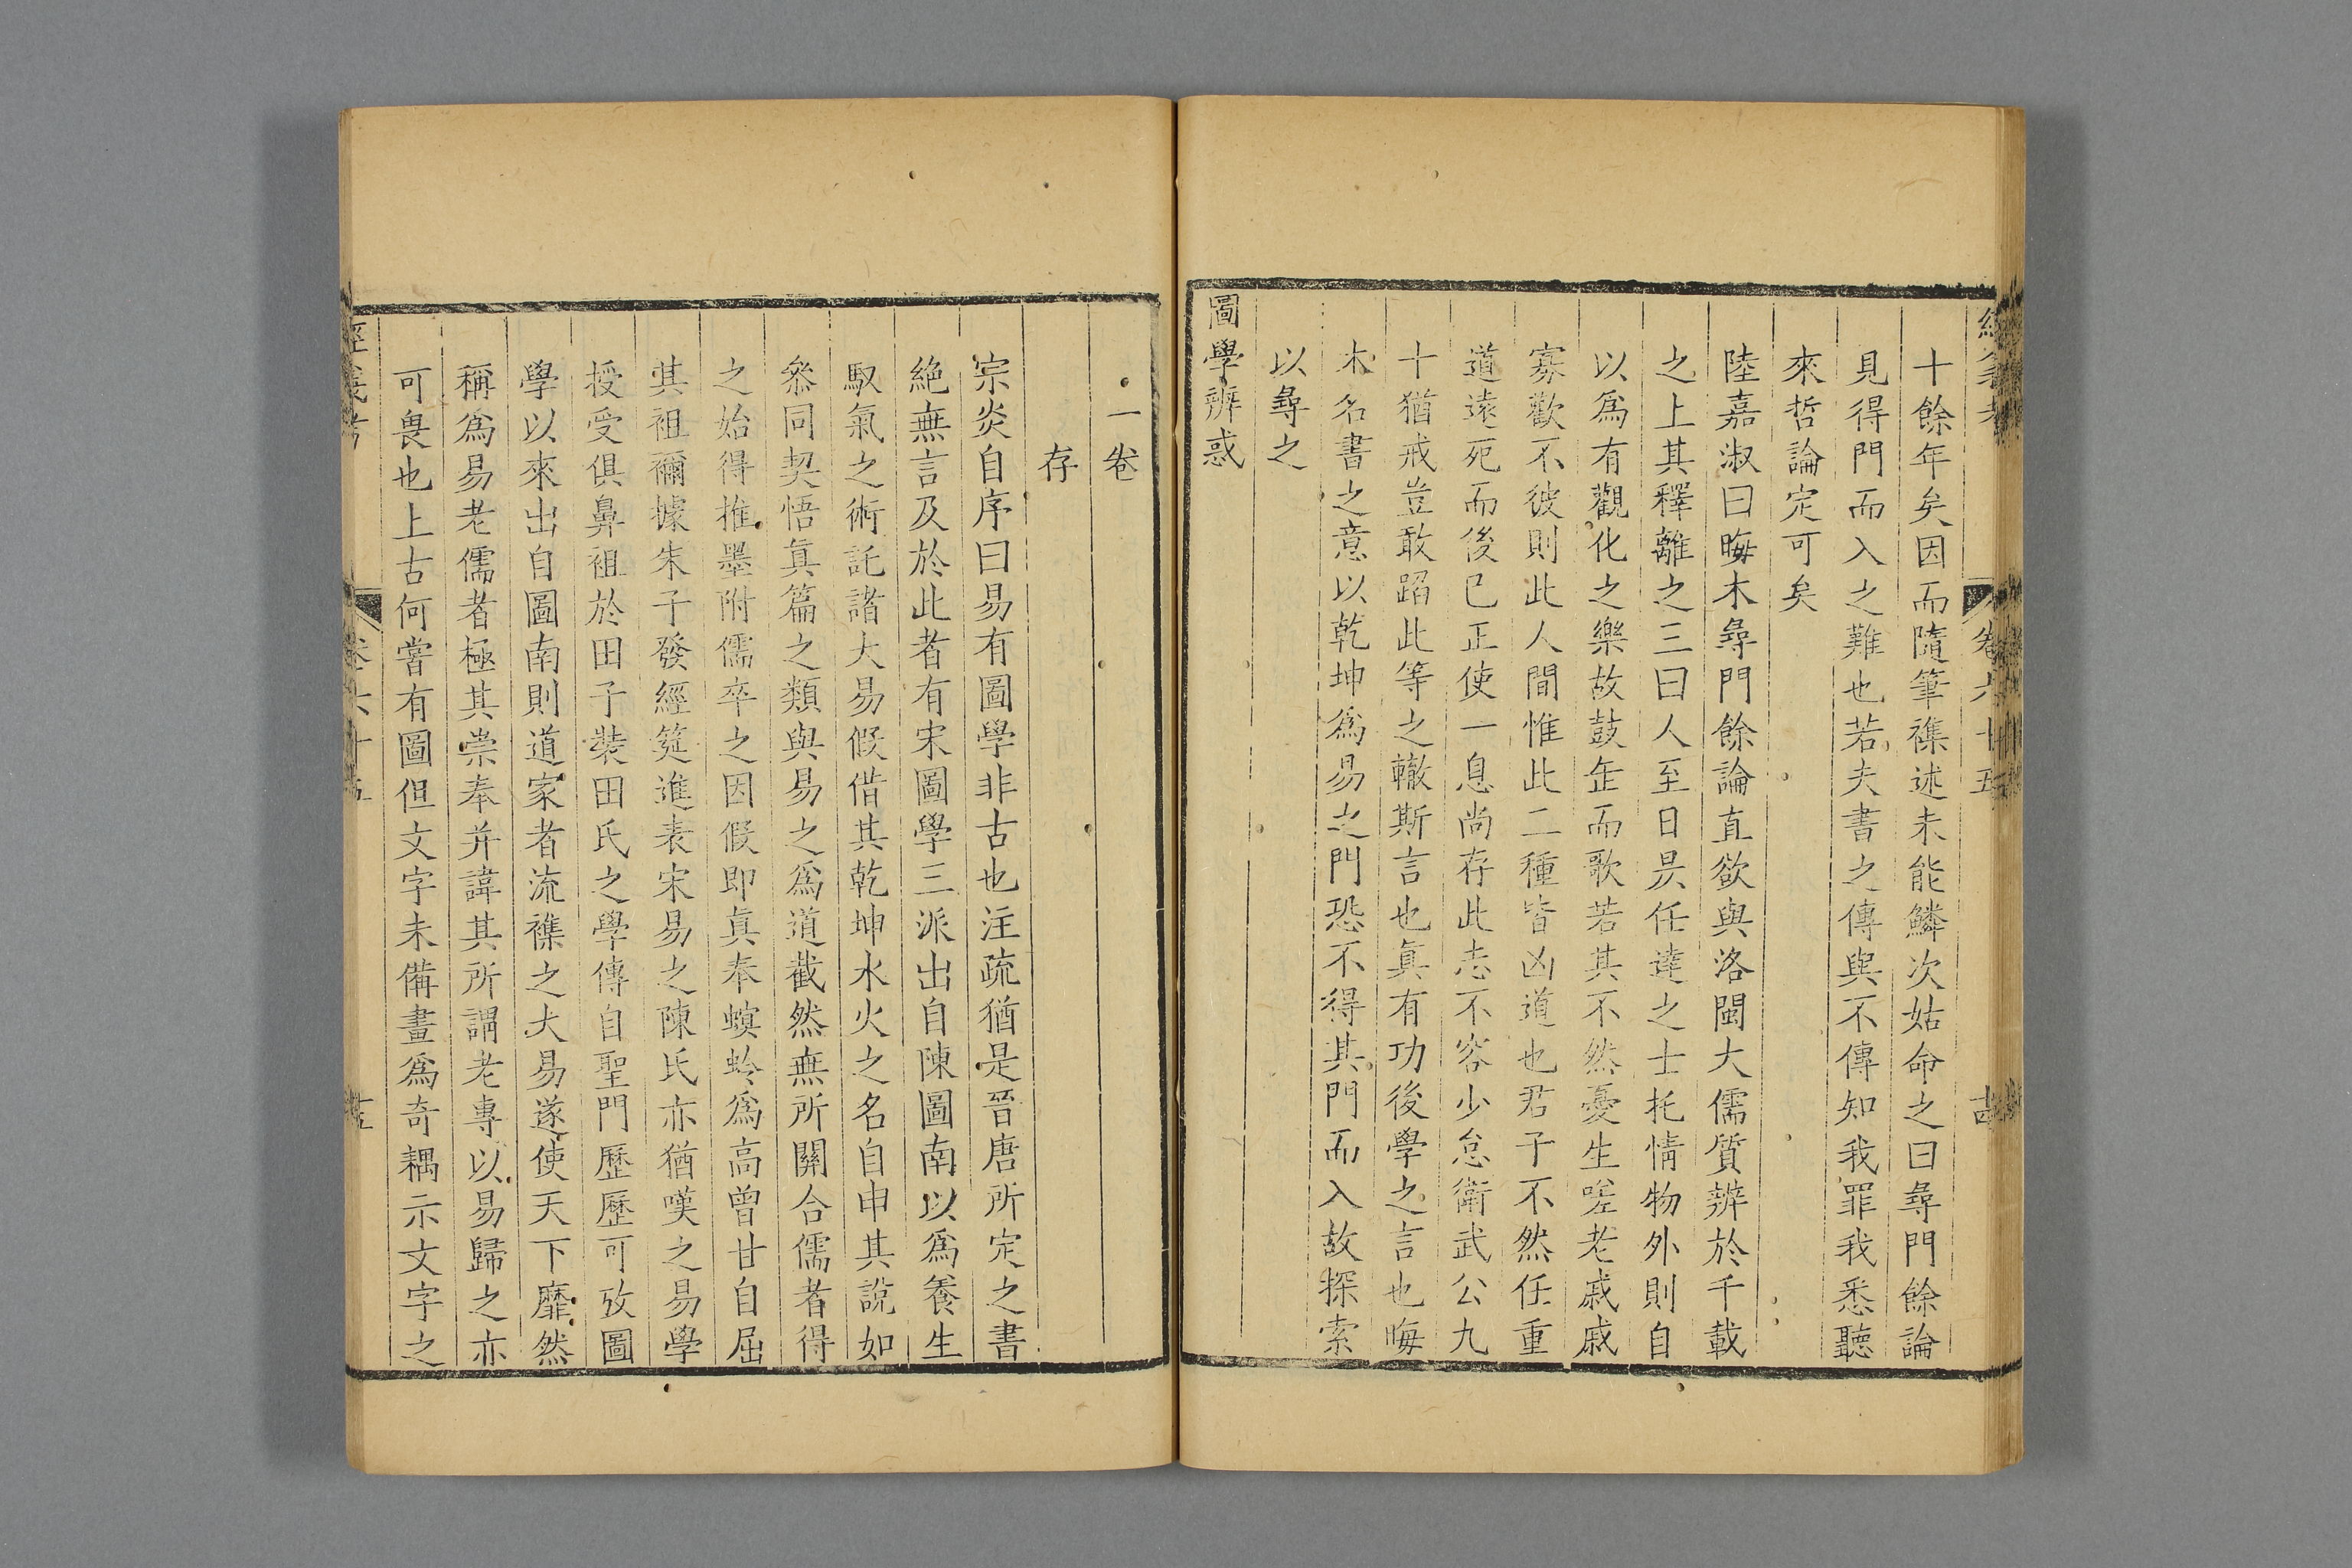 經義考 卷六十五 古
十餘年矣因而隨筆襍述未能鱗次姑命之曰尋門餘論
見得門而入之難也若夫書之傳與不傳知我罪我悉聽
來哲論定可矣
陸嘉淑曰晦木尋門餘論直欲與洛閩大儒質辨於千載
之上其釋離之三曰人至日昃任達之士托情物外則自
以爲有觀化之樂故鼓缶而歌若其不然憂生嗟老戚戚
寡歡不彼則此人間惟此二種皆凶道也君子不然任重
道遠死而後已正使一息尚存此志不容少怠衛武公九
十猶戒豈敢蹈此等之轍斯言也眞有功後學之言也晦
木名書之意以乾坤爲易之門恐不得其門而入故探索
以尋之
圖學辨惑
一卷
存
宗炎自序曰易有圖學非古也注疏猶是晉唐所定之書
絕無言及於此者有宋圖學三派出自陳圖南以爲養生
馭氣之術託諸大易假借其乾坤水火之名自申其說如
叅同契悟眞篇之類與易之爲道截然無所關合儒者得
之始得推墨附儒卒之因假即眞奉螟蛉爲高曾甘自屈
其祖禰據朱子發經筵進表宋易之陳氏亦猶嘆之易學
授受俱鼻祖於田子裝田氏之學傳自聖門歷歷可攷圖
學以來出自圖南則道家者流襍之大易遂使天下靡然
稱爲易老儒者極其崇奉并諱其所謂老專以易歸之亦
可畏也上古何嘗有圖但文字未備畫爲奇耦示文字之
經義考 卷六十五